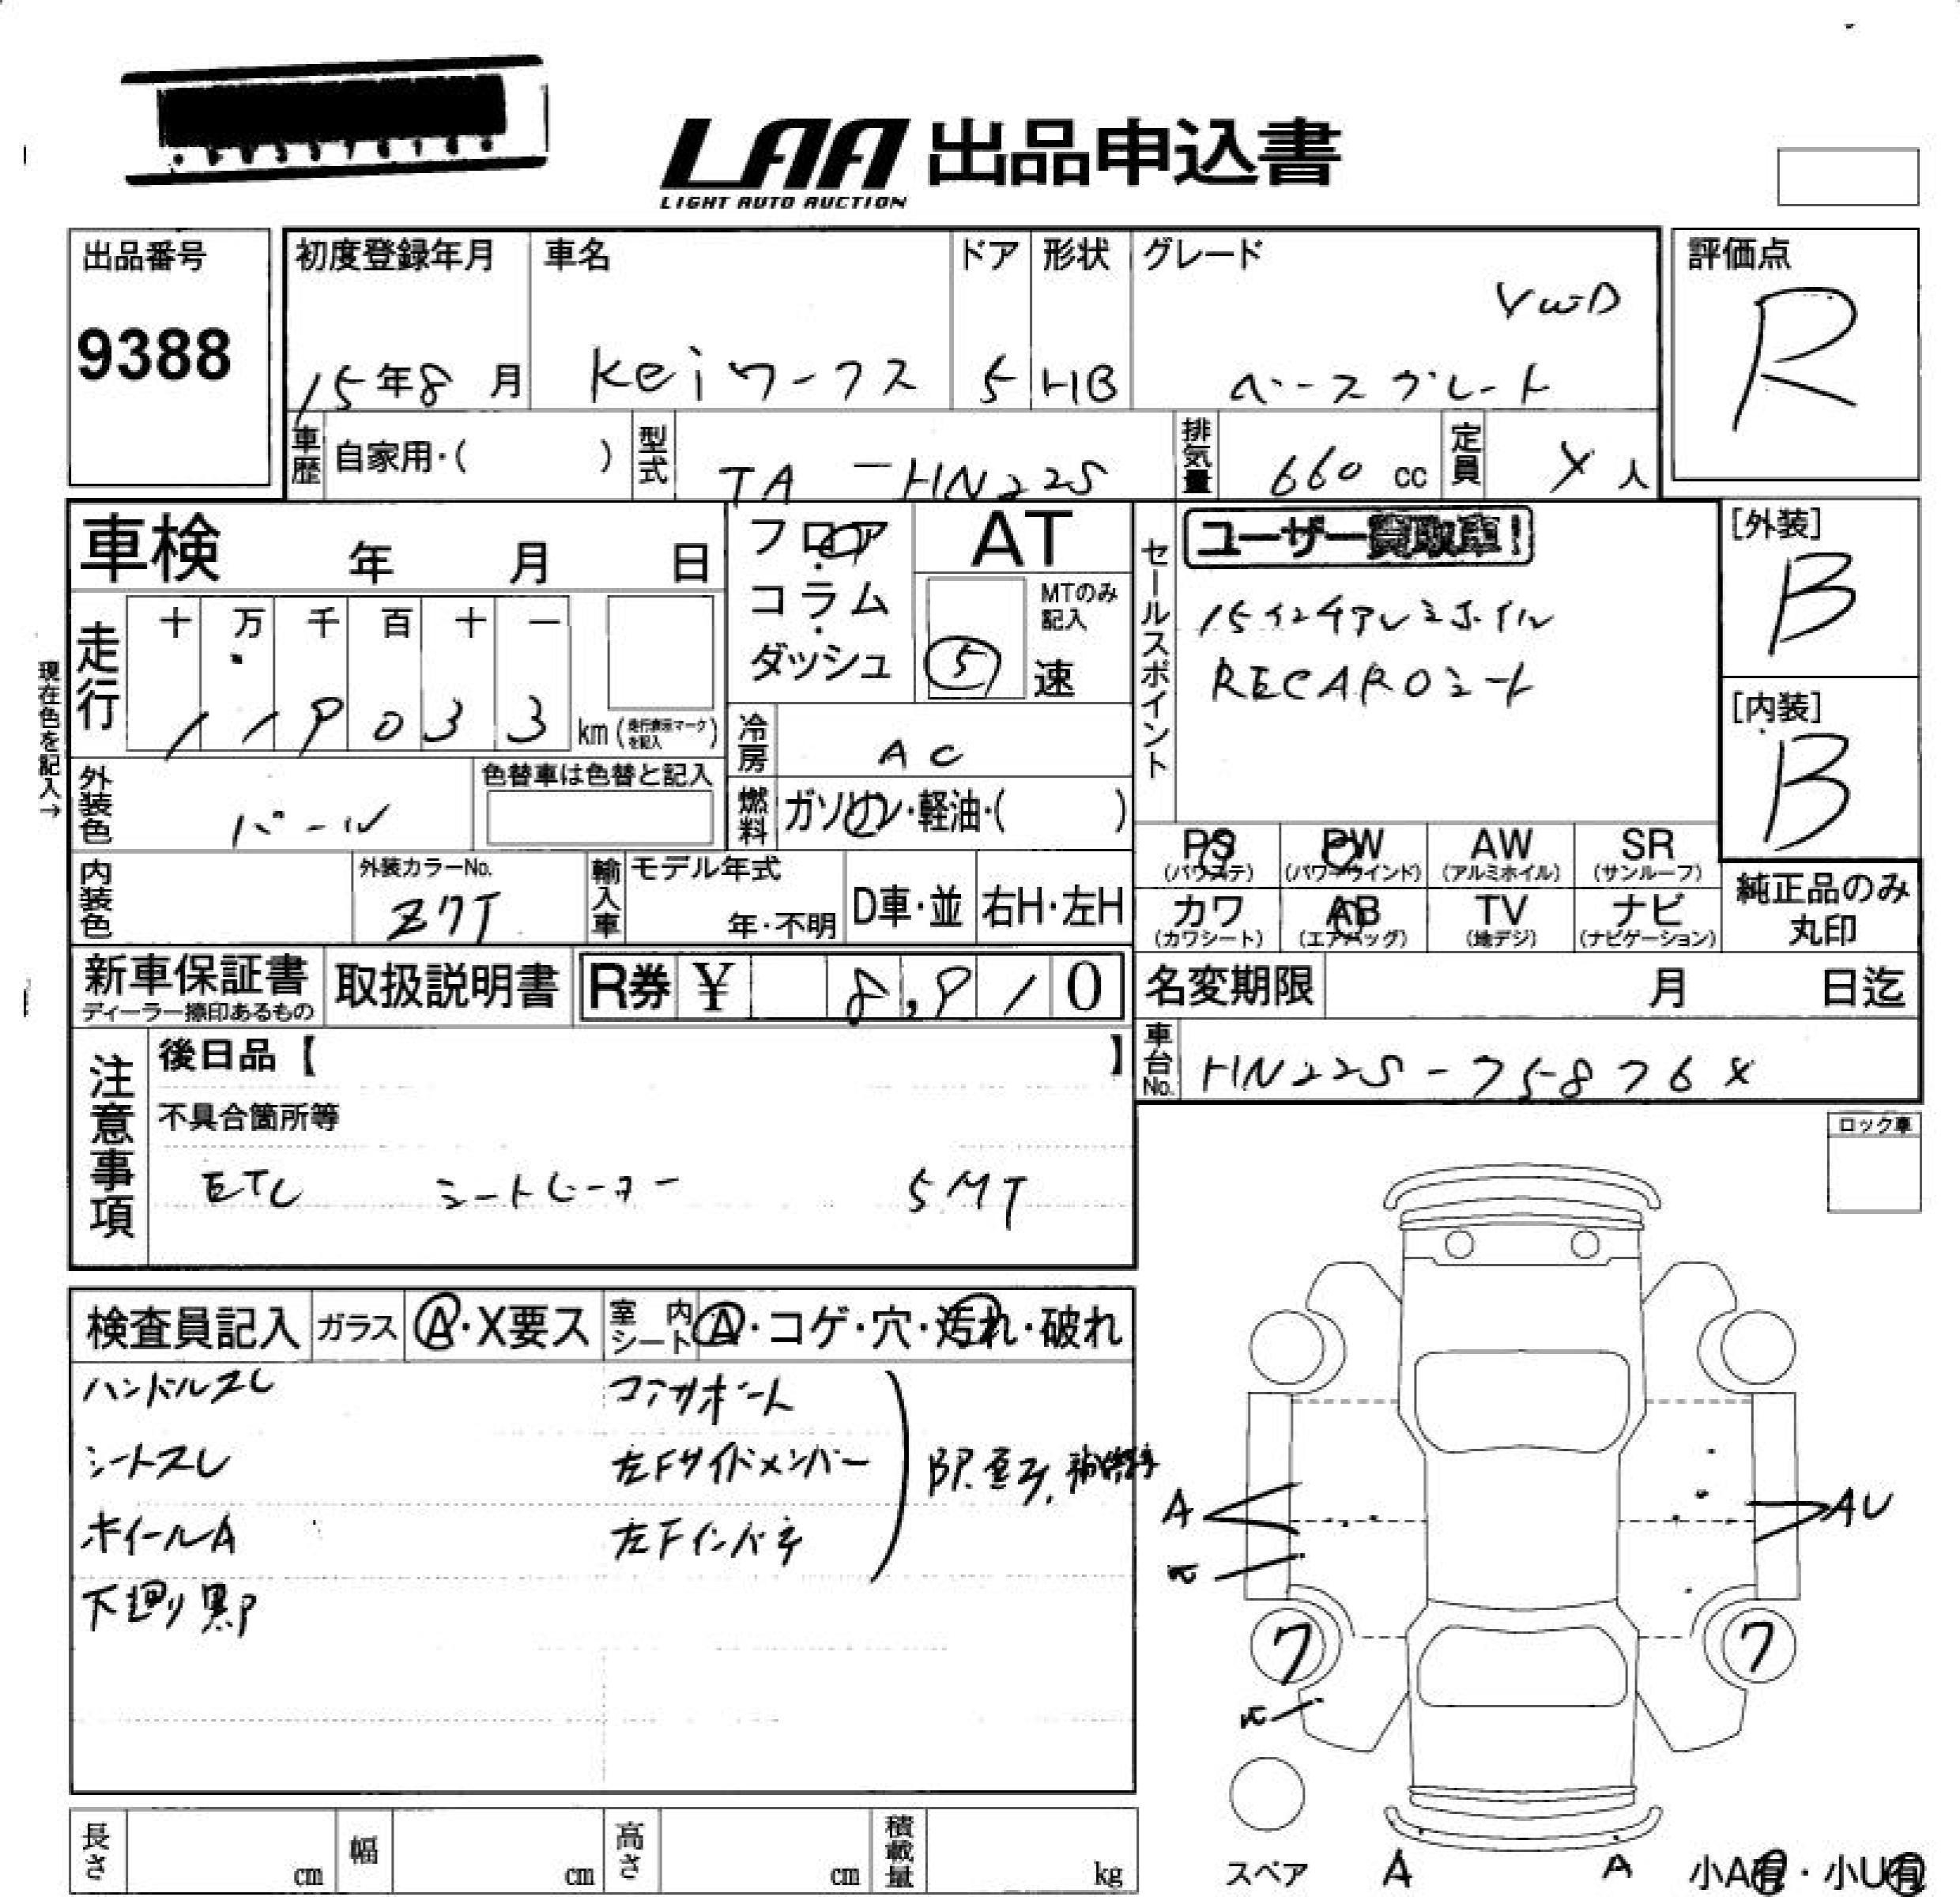 LAA 出品申込書
LIGHT AUTO AUCTION
出品番号
9388
初度登録年月
15年8月
車名
Keiワークス
ドア
5
形状
HB
グレード
4WD
ベースグレード
評価点
R
車歴
自家用・( )
型式
TA-HN22S
排気量
660 cc
定員
4人
車検 年 月 日
走行
十 万 千 百 十 一
119033 km (走行表示マークを記入)
現在色を記入→
フロア・コラム・ダッシュ
AT
MTのみ記入
5 速
冷房
AC
燃料
ガソリン・軽油・( )
セールスポイント
ユーザー買取車!
15インチアルミホイル
RECAROシート
[外装]
B
[内装]
B
外装色
パール
色替車は色替と記入
内装色
外装カラーNo.
Z7T
輸入車
モデル年式
年・不明
D車・並
右H・左H
PS (パワステ)
PW (パワーウインド)
AW (アルミホイル)
SR (サンルーフ)
カワ (カワシート)
AB (エアバッグ)
TV (地デジ)
ナビ (ナビゲーション)
純正品のみ丸印
新車保証書
ディーラー捺印あるもの
取扱説明書
R券 ¥ 8,910
名変期限 月 日迄
車台No.
HN22S-758764
注意事項
後日品【 】
不具合箇所等
ETC シートヒーター 5MT
ロック車
検査員記入
ガラス
A・X要ス
室内シート
A・コゲ・穴・汚れ・破れ
ハンドルスレ
シートスレ
ホイールA
下廻り黒P
コアサポート
左Fサイドメンバー
左Fインパネ
A
AU
ワ
ワ
スペア
A
A
小A有・小U有
長さ cm
幅 cm
高さ cm
積載量 kg